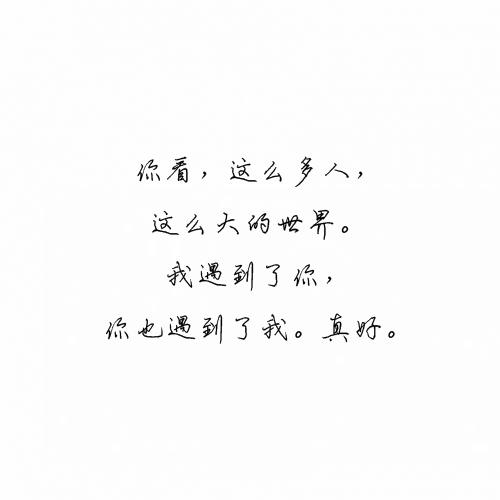 你看，这么多人，
这么大的世界。
我遇到了你，
你也遇到了我。真好。